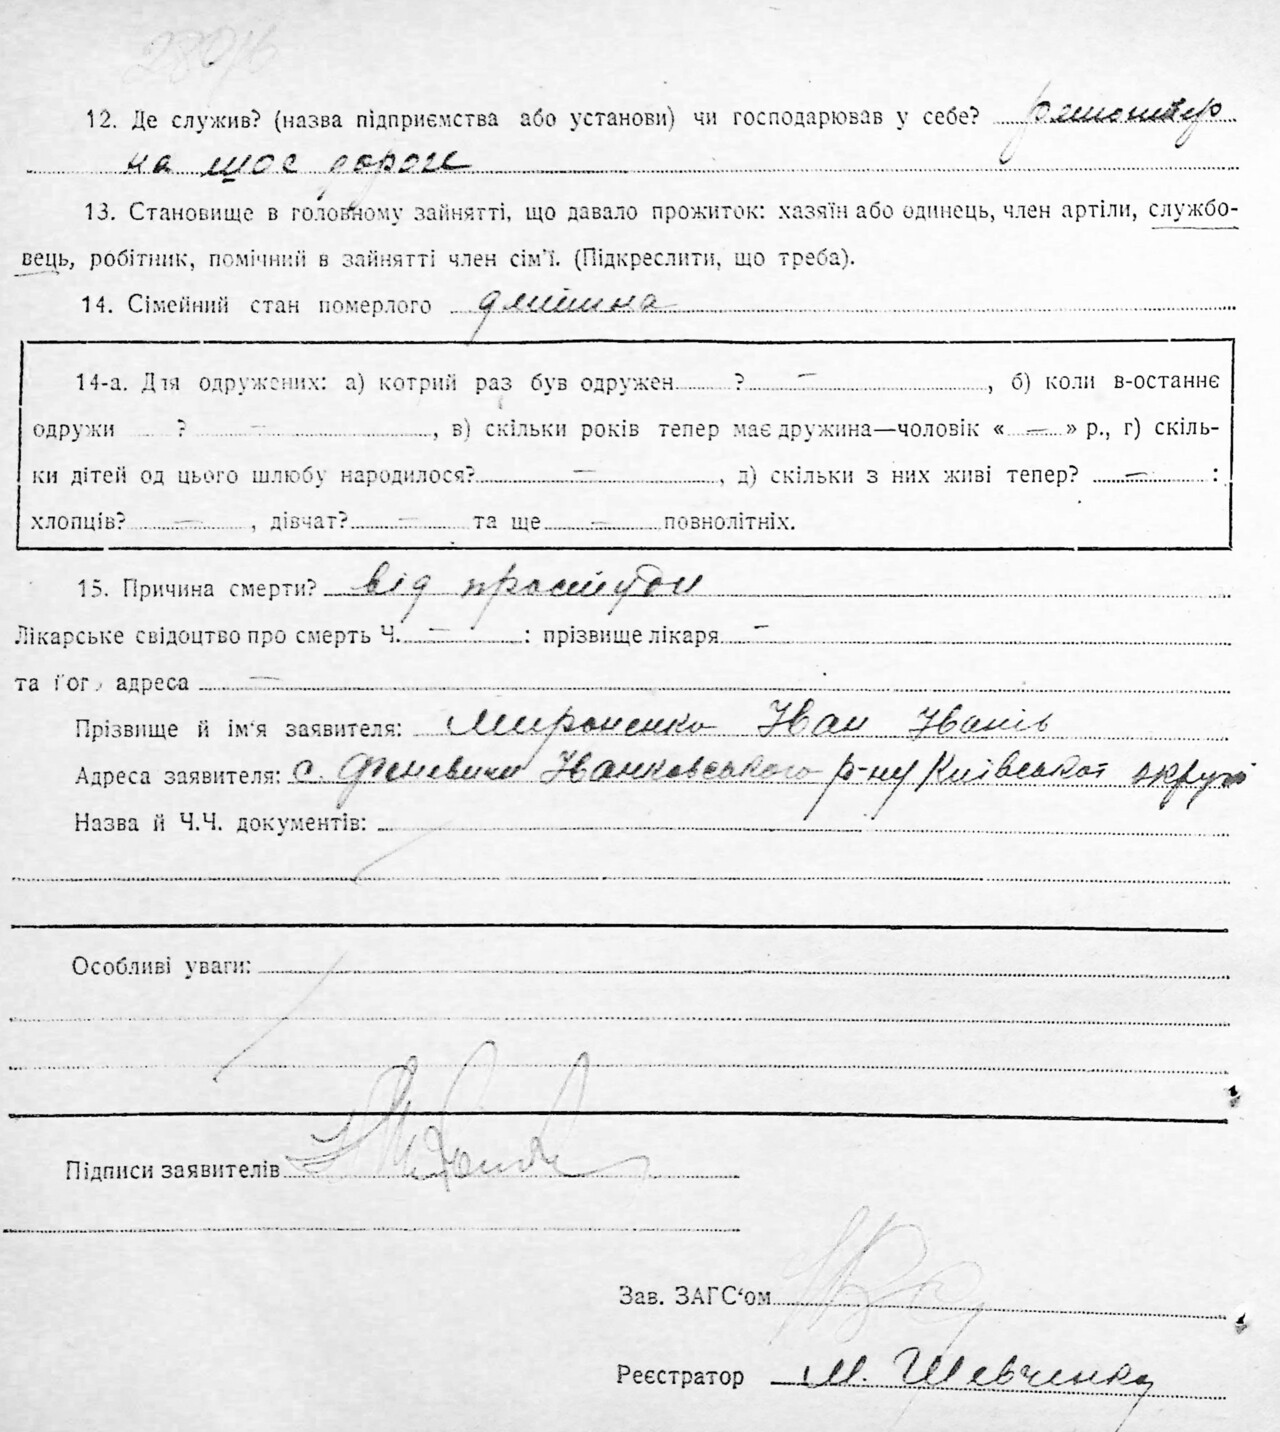 280/6
12. Де служив? (назва підприємства або установи) чи господарював у себе? ремонтер
на шосе дороги
13. Становище в головному зайнятті, що давало прожиток: хазяїн або одинець, член артіли, службо-
вець, робітник, помічний в зайнятті член сім'ї. (Підкреслити, що треба).
14. Сімейний стан померлого дитина
14-а. Для одружених: а) котрий раз був одружен ? —, б) коли в-останнє
одружи ? —, в) скільки років тепер має дружина—чоловік « — » р., г) скіль-
ки дітей од цього шлюбу народилося? —, д) скільки з них живі тепер? — :
хлопців? —, дівчат? — та ще — повнолітніх.
15. Причина смерти? від простуди
Лікарське свідоцтво про смерть Ч. — : прізвище лікаря —
та його адреса —
Прізвище й ім'я заявителя: Мироненко Іван Іванів
Адреса заявителя: с. Феневичи Іванковського р-ну Київської округи
Назва й Ч.Ч. документів:
Особливі уваги:
Підписи заявителів
Зав. ЗАГС'ом
Реєстратор М. Шевченко